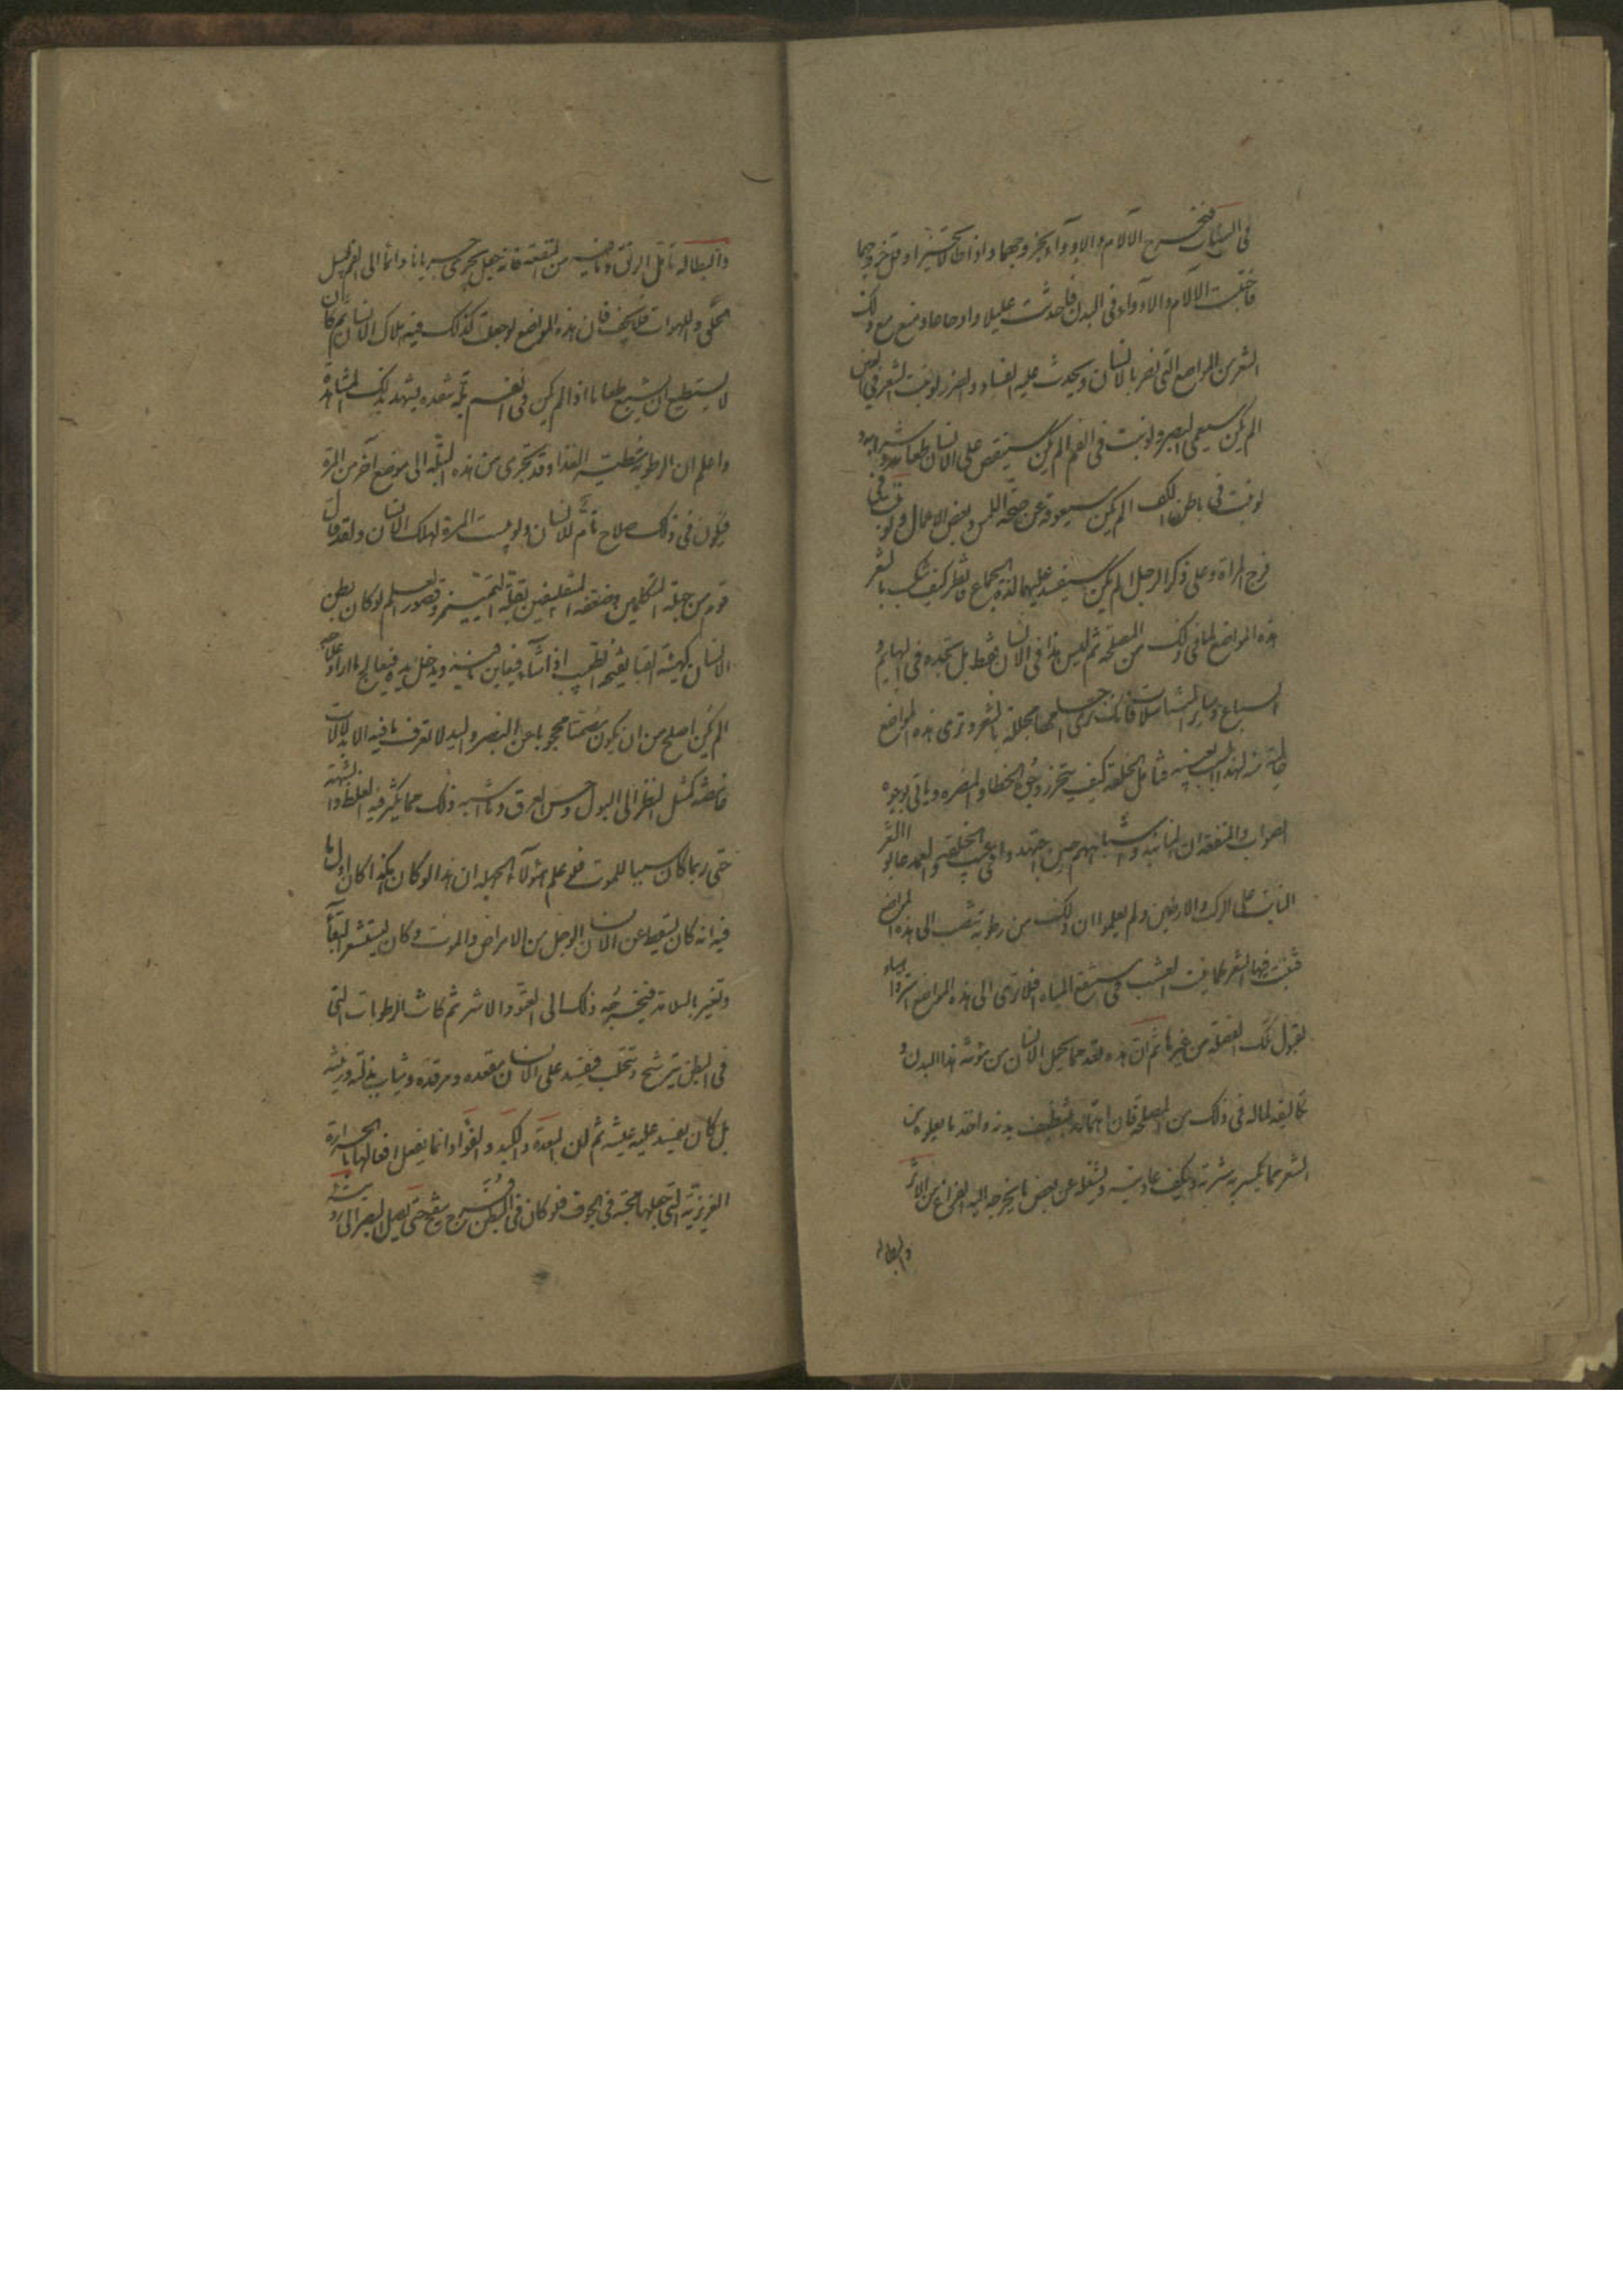 في البنات فتخرج الآلام والادوآء بخروجهما واذا طالا تحيّرا وقلّ خروجهما
فاحتبست الآلام والادوآء في البدن فاحدثت عليلا واوجاعا ومنع مع ذلك
الشعر من المواضع التي تضر بالانسان ويحدث عليه الفساد والضرر لو نبت الشعر في العين
الم يكن سيعمي البصر ولو نبت في الفم الم يكن سينغص على الانسان طعامه وشرابه ولو
لو نبت في باطن الكف الم يكن سيعوقه عن صحّة اللمس وبعض الاعمال ولو نبت في
فرج المراة وعلى ذكر الرجل الم يكن سيفسد عليهما لذة الجماع فانظر كيف تنكب بالشعر
هذه المواضع لما في ذلك من المصلحة ثم ليس هذا في الانسان فقط بل تجده في البهايم و
السباع وساير المتناسلات فانك ترى اجسامها مجللة بالشعر وترى هذه المواضع
خالية منه لهذا السبب بعينه فتامل الخلقة كيف تتحرز وجوه الخطا والمضره وياتي بوجوه
الصواب والمنفعة ان المنانية واشباههم حين اجتهدوا في عيب الخلقة والعمد عابوا الشعر
النابت على الركب والابطين ولم يعلموا ان ذلك من رطوبة تنصب الى هذه المواضع
فتنبت فيها الشعر كما ينبت العشب في مستنقع المياه افلا ترى الى هذه المواضع استر واهياء
لقبول تلك الفضلة من غيرها ثم ان هذه تعد مما يحمل الانسان من مؤنة هذا البدن و
تكاليفه لما له في ذلك من المصلحة فان اهتمامه بتنظيف بدنه واخذ ما يعلوه من
الشعر مما يكسر به شرته ويكف عاديته ويشغله عن بعض ما يخرجه اليه الفراغ من الاشر
والبطاله
والبطاله تامّل الريق وما فيه من المنفعة فانه جعل يجري جريانا دائما الى الفم ليبل
الحلق واللهوات فلا يجف فان هذه المواضع لو جعلت كذلك كان فيه هلاك الانسان ثم كان
لا يستطيع ان يسيغ طعاما اذا لم يكن في الفم بلّة تنفذه يشهد بذلك المشاهدة
واعلم ان الرطوبة مطيّة الغذا وقد تجري من هذه البلّة الى موضع آخر من المرّة
فيكون في ذلك صلاح تامّ للانسان ولو يبست المرة لهلك الانسان ولقد قال
قوم من جهلة المتكلمين وضعفة المتفلسفين بقلّة التمييز وقصور العلم لو كان بطن
الانسان كهيئة القبا يفتحه الطبيب اذا شآء فيعاين ما فيه ويدخل يده فيعالج ما اراد علاجه
الم يكن اصلح من ان يكون مصمتا محجوبا عن البصر واليد لا تعرف ما فيه الا بدلالات
غامضة كمثل النظر الى البول وحس العرق وما اشبه ذلك مما يكثر فيه الغلط والشبهة
حتى ربما كان سببا للموت فلو علم هؤلآء الجهلة ان هذا لو كان هكذا كان اول ما
فيه انه كان يسقط عن الانسان الوجل من الامراض والموت وكان يستشعر البقآء
وتغير بالسلامة فيخرجه ذلك الى العتوّ والاشر ثم كانت الرطوبات التي
في البطن تترشح وتتحلب فيفسد على الانسان مقعده ومرقده وثياب بذلته وزينته
بل كان يفسد عليه عيشه ثم ان المعدة والكبد والفؤاد انما يفعل افعالها بالحرارة
الغريزيّة التي جعلها محتبسة في الجوف فلو كان في البطن فرج ينفتح حتى يصل البصر الى رؤيته